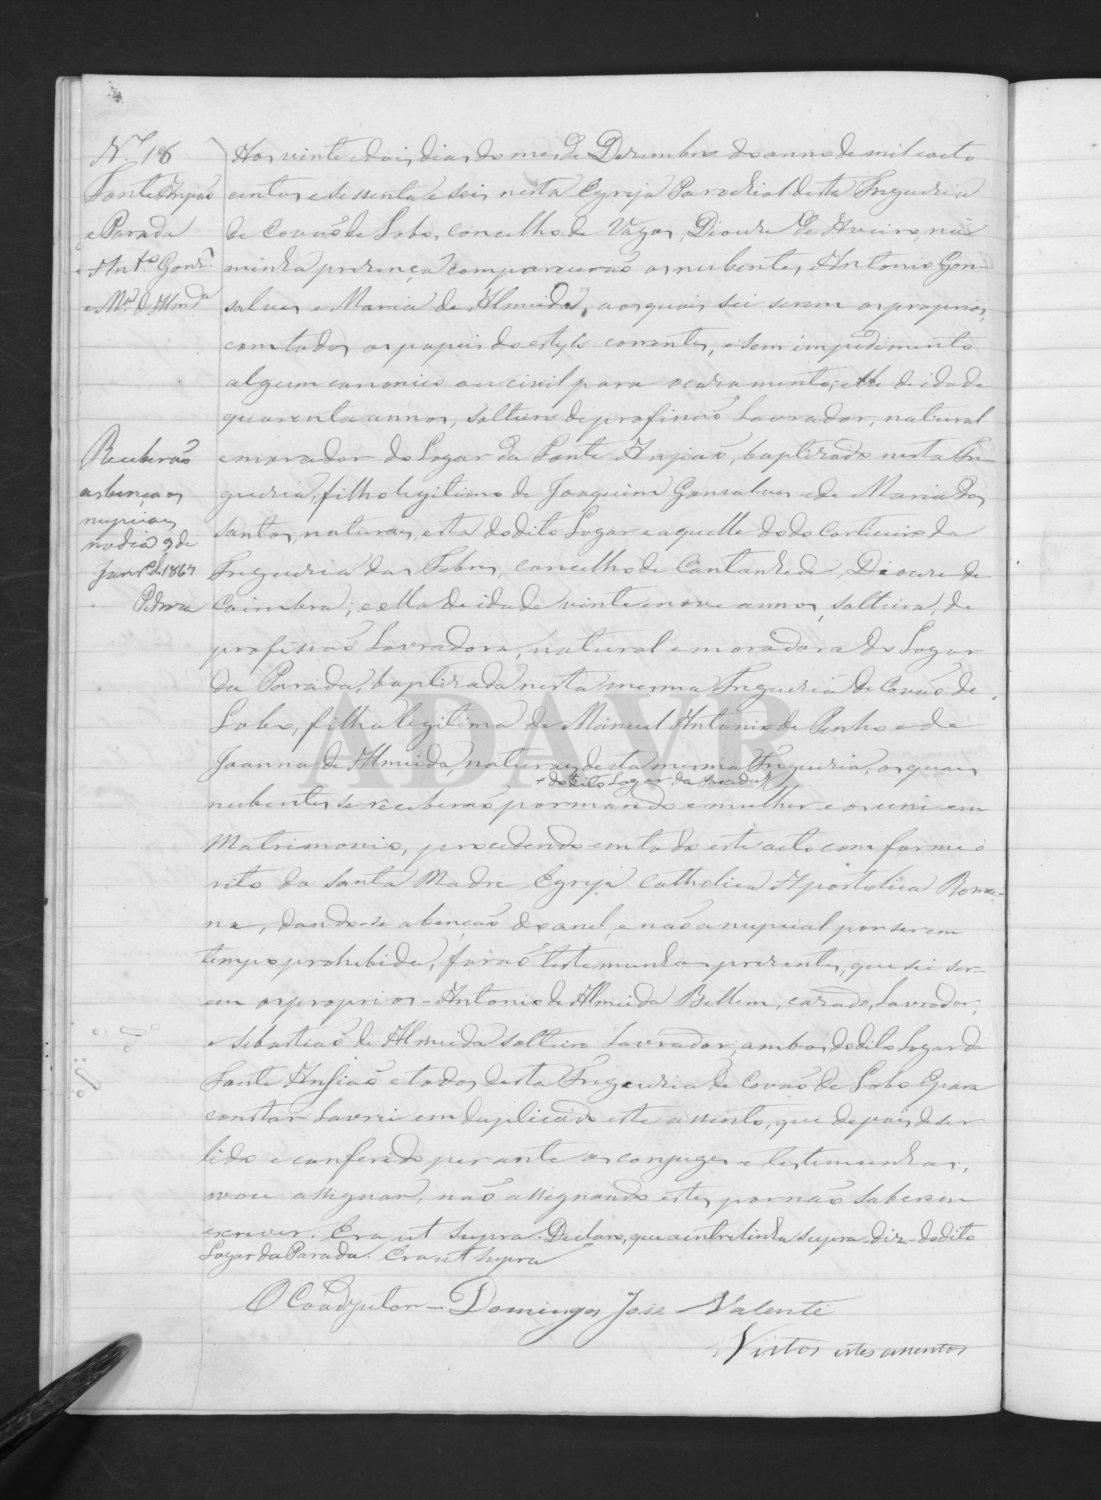 N.º 18
Fonte Anjião
e Parada
Ant.º Gons.
e M.ª d'Almd.ª
Aos vinte e dois dias do mes de Dezembro do anno de mil e oito
centos e sessenta e seis nesta Egreja Parochial desta Freguezia
de Covão de Lobo, concelho de Vagos, Diocese de Aveiro, na
minha presença compareceraõ os nubentes Antonio Gon-
salves e Maria de Almeida, aos quais sei serem os proprios,
com todos os papeis do estylo correntes, e sem impedimento
algum canonico ou civil para o cazamento; elle de idade
quarenta annos, solteiro de profissaõ Lavrador, natural
e morador do Lugar da Fonte Anjiaõ, baptizado nesta Fre
guezia, filho legitimo de Joaquim Gonsalves e de Maria dos
Santos, naturaes, esta do dito Lugar e aquelle do do Corticeiro da
Freguezia das Febres, concelho de Cantanhede, Diocese de
Coimbra; e ella de idade vinte e nove annos, solteira, de
profissaõ Lavradora, natural e moradora do Lugar
da Parada, baptizada nesta mesma Freguezia de Covaõ de
Lobo, filha legitima de Manuel Antonio de Pinho e de
Joanna de Almeida, naturaes desta mesma Freguezia, os quaes
e do dito Lugar da Parada
nubentes se receberaõ por marido e mulher e os uni em
Matrimonio, procedendo em todo este acto conforme o
rito da Santa Madre Egreja Catholica Apostolica Roma-
na, dando-se a bençaõ do anel, e naõ a nupcial por ser em
tempo prohibido, foraõ testemunhas prezentes, que sei ser-
em os proprios - Antonio de Almeida Bellem, cazado, Lavrador,
e Sebastiaõ de Almeida solteiro Lavrador, ambos do dito Lugar da
Fonte Anjiaõ e todos desta Freguezia de Covaõ de Lobo. E para
constar Lavrei em duplicado este assento, que depois de ser
lido e conferido perante os conjuges e testemunhas,
vou assignar, naõ assignando estes por naõ saberem
escrever. Era ut supra. Declaro, que a intrelinha supra diz - do dito
Lugar da Parada. Era ut supra
O Coadjutor - Domingos Jose Valente
Vistos estes assentos
Receberaõ
as bençaos
nupciaes
no dia 9 de
Janr.º de 1867
ADAVR